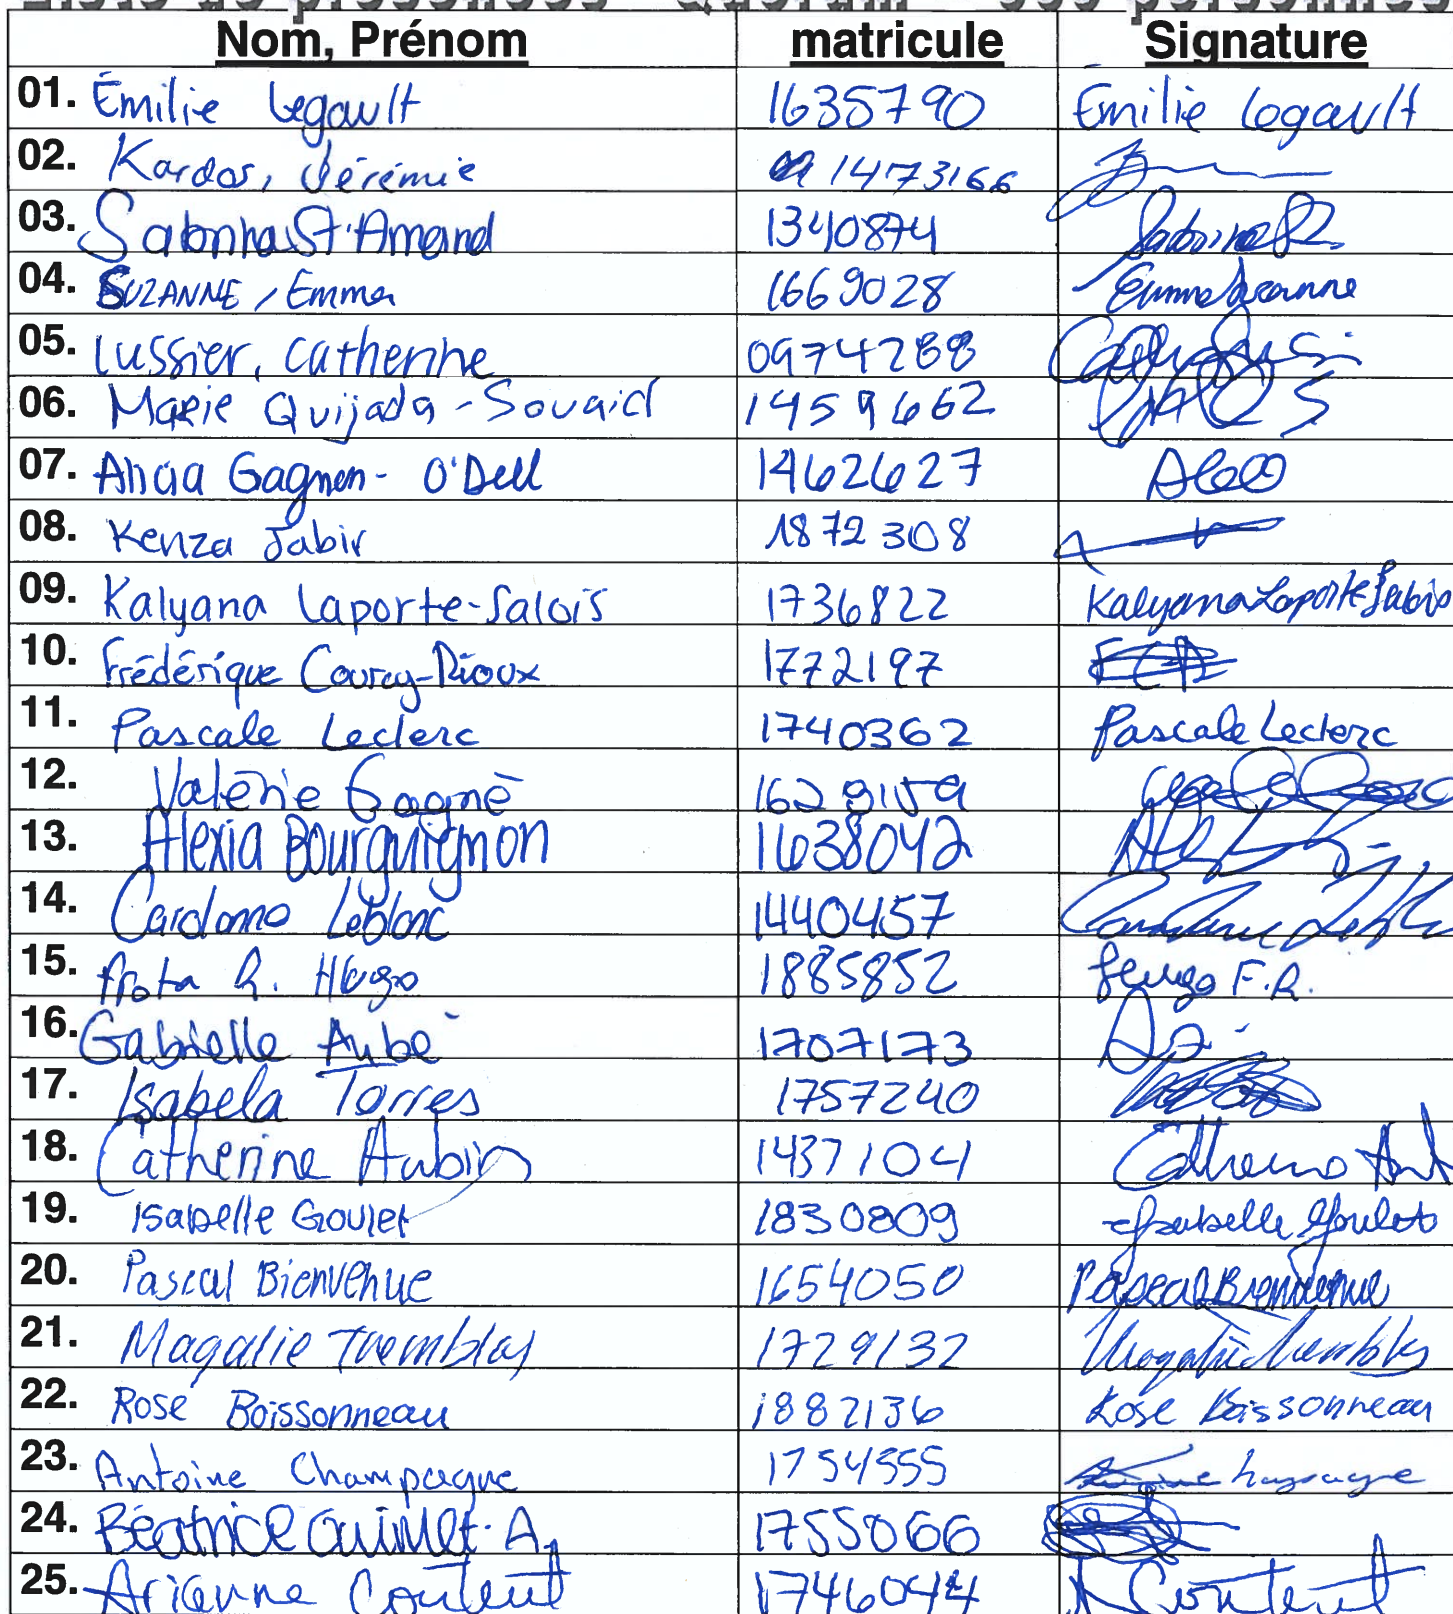 Liste de présences - Quorum - 
Nom, Prénom matricule Signature
01. Émilie Legault 1635790 Émilie Legault
02. Kardos, Jérémie 1473166
03. Sabrina St-Amand 1340874
04. SUZANNE, Emma 1669028 Emma Suzanne
05. Lussier, Catherine 0974288
06. Marie Quijada-Souaid 1459662
07. Alicia Gagnon-O'Dell 14626627
08. Kenza Jabir 1872308
09. Kalyana Laporte-Salois 1736822 Kalyana Laporte Salois
10. Frédérique Courcy-Rioux 1772197
11. Pascale Leclerc 1740362 Pascale Leclerc
12. Valérie Gagné 1629159
13. Alexia Bourguignon 1638042
14. Leblanc 1440457
15. Frota R. Hugo 1885852 Hugo F.R.
16. Gabrielle Aubé 1707173
17. Isabela Torres 1757240
18. Catherine Aubin 1437104
19. Isabelle Goulet 1830809 Isabelle Goulet
20. Pascal Bienvenue 1654050 Pascal Bienvenue
21. Magalie Tremblay 1729132 Magalie Tremblay
22. Rose Boissonneau 1882136 Rose Boissonneau
23. Antoine Champagne 1754555
24. Béatrice Ouimet-A. 1755066
25. Arianne Couteut 1746044 A Couteut